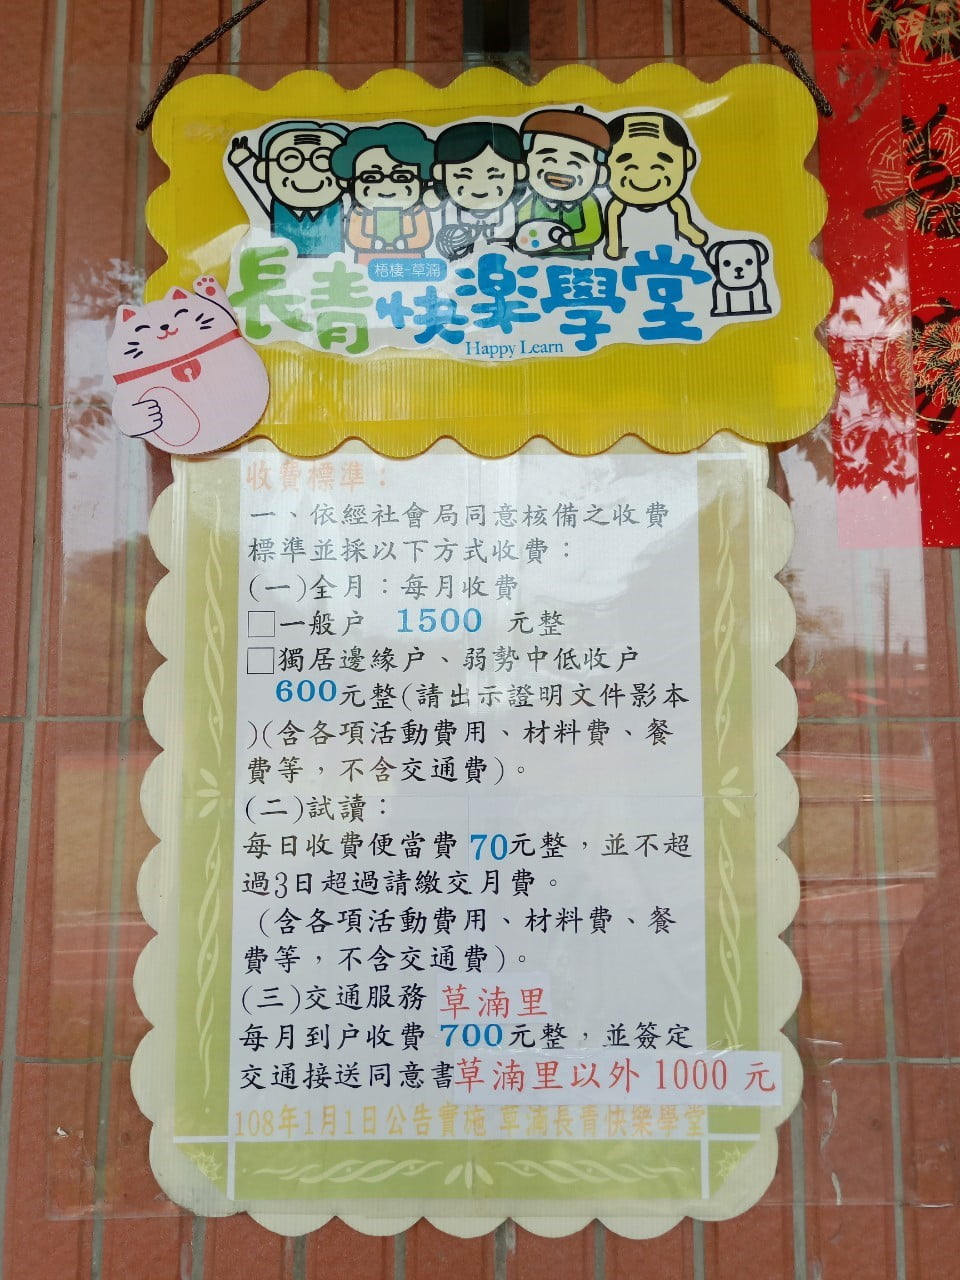 梧棲-草湳
長青快樂學堂
Happy Learn
收費標準：
一、依經社會局同意核備之收費
標準並採以下方式收費：
(一)全月：每月收費
□一般户 1500 元整
□獨居邊緣户、弱勢中低收户
600元整(請出示證明文件影本
)(含各項活動費用、材料費、餐
費等，不含交通費)。
(二)試讀：
每日收費便當費 70元整，並不超
過3日超過請繳交月費。
(含各項活動費用、材料費、餐
費等，不含交通費)。
(三)交通服務 草湳里
每月到户收費 700元整，並簽定
交通接送同意書草湳里以外 1000 元
108年1月1日公告實施 草湳長青快樂學堂